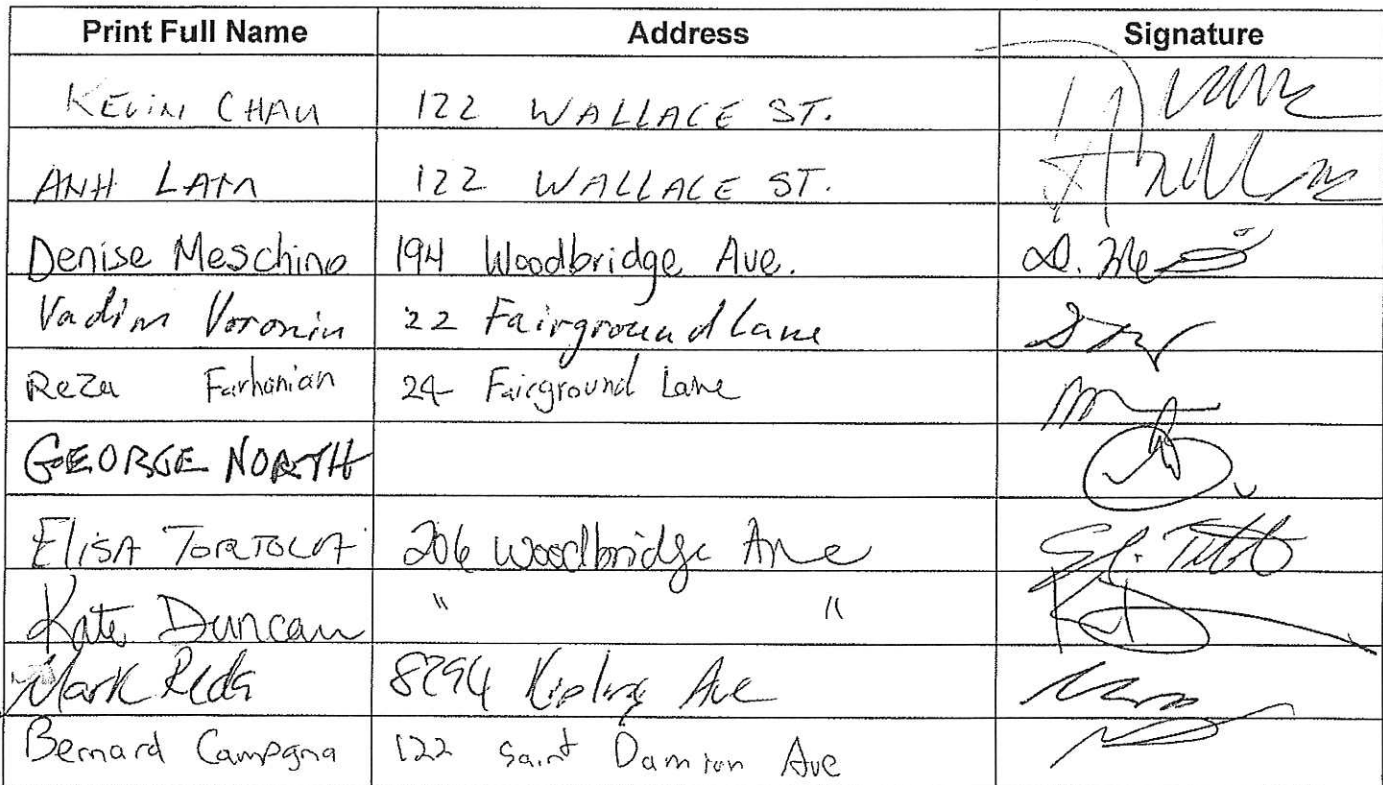 Print Full Name Address Signature
KEVIN CHAU 122 WALLACE ST.
ANH LAM 122 WALLACE ST.
Denise Meschino 194 Woodbridge Ave. D. Me
Vadim Voronin 22 Fairground Lane
Reza Farhanian 24 Fairground Lane
GEORGE NORTH
ElisA TORTOLA 206 Woodbridge Ave
Kate Duncan " " KD
Mark 8294 Kipling Ave
Bernard Campagna 122 Saint Damian Ave